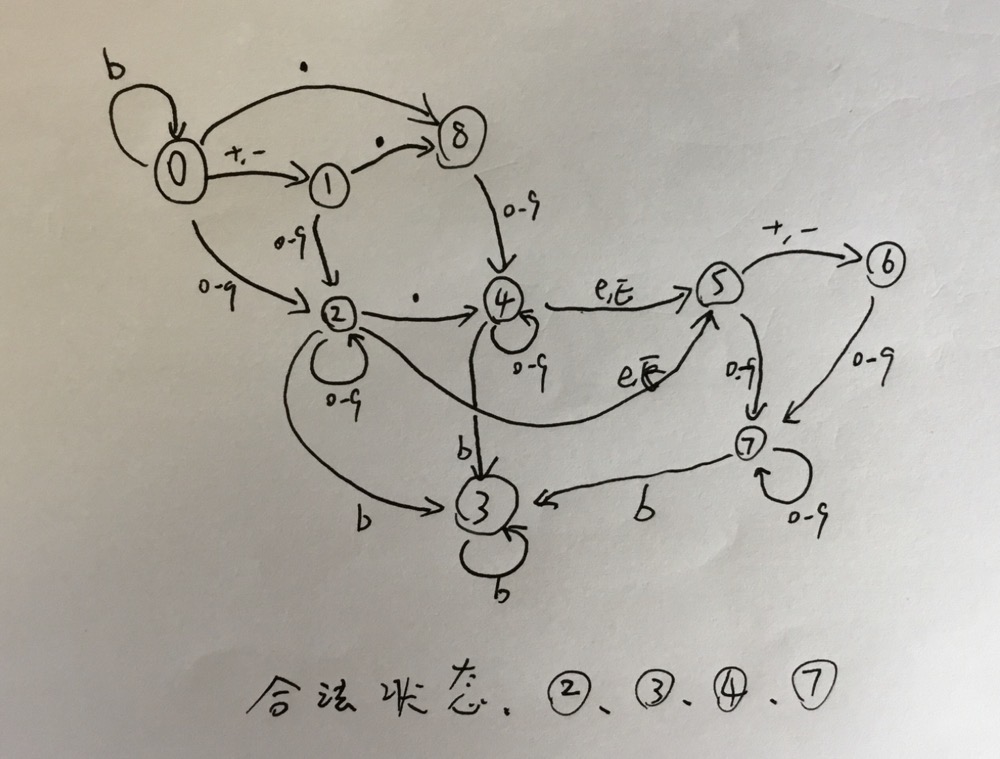 b
.
0
+,-
1
.
8
0-9
0-9
0-9
2
.
4
e,E
5
+,-
6
0-9
0-9
e,E
0-9
0-9
7
0-9
b
b
3
b
b
合法状态. ②、③、④、⑦